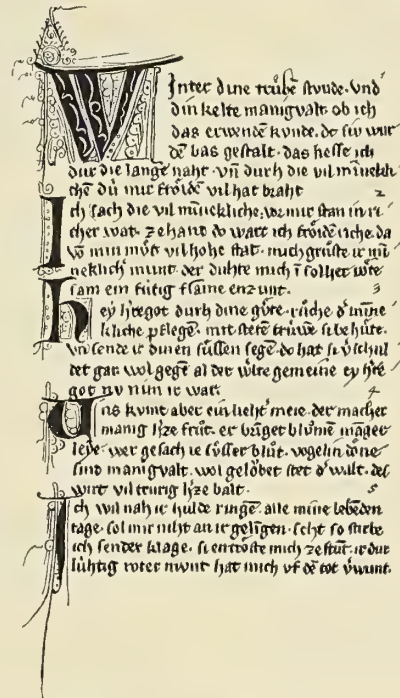 Winter dine truͤbe stvnde · vnd
din kelte manigvalt · ob ich
das erwendē kvnde · do siv wur
dē bas gestalt · das hesse ich
dur die lange naht · vn̄ durch die vil miñeklí
chē dú mir froͤidē vil hat braht 2
Ich sach die vil miñekliche · vor mir stan in ri
cher wat · zehant do wart ich froͤidē riche · da
vō min muͦt vil hohe stat · mich gruͦste ir mī
neklich' munt · der duhte mich ī solher roͤte
sam ein fúrig flame enzunt · 3
Hey h're got durh dine guͤte · ruͦche d' mine
kliche pflegē · mit stete trúwe si behuͤte ·
vn̄ sende ir dinen suͤssen segē · do hat si v'schul
det gar · wol gegē al der w'lte gemeine ey h're
got nv nim ir war · 4
Uns kvmt aber ein lieht' meie · der machet
manig h'ze fruͦt · er bringet bluͦmē māger
leye · wer gesach ie suͤsser bluͦt · vogelin doͤne
sint manigvalt · wol geloͮbet stet d' walt · des
wirt vil trurig h'ze balt · 5
Ich wil nah ir hulde ringē · alle mine lebēdē
tage · sol mir niht an ir gelīgen · seht so stirbe
ich sender klage · si entroͤste mich ze stūt · ir dur
lúhtig roter munt hat mich vf dē tot v'wunt ·